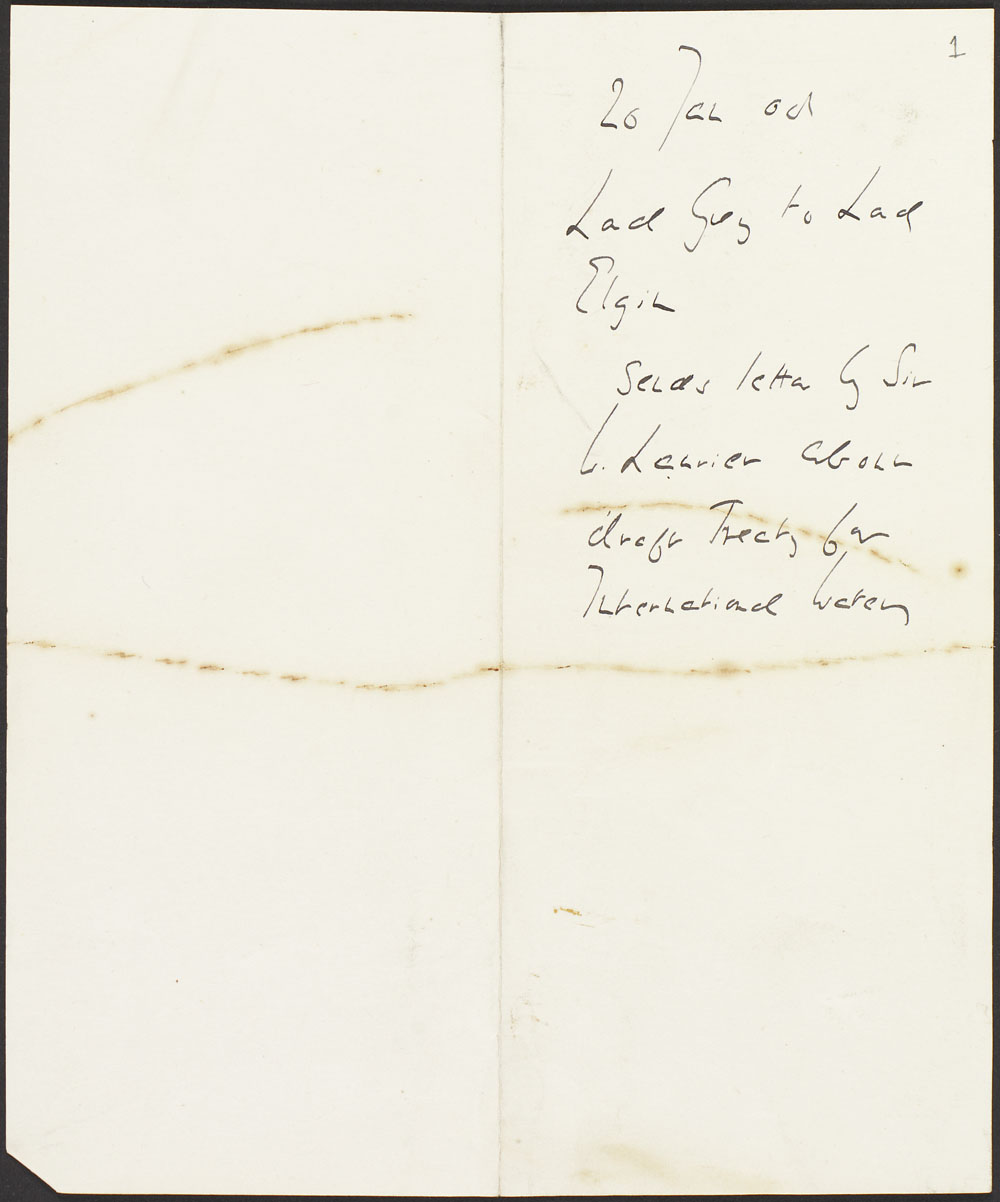 1
20 Jan 08
Lord Grey to Lord
Elgin
sends letter by Sir
W. Laurier about
draft Treaty for
International waters